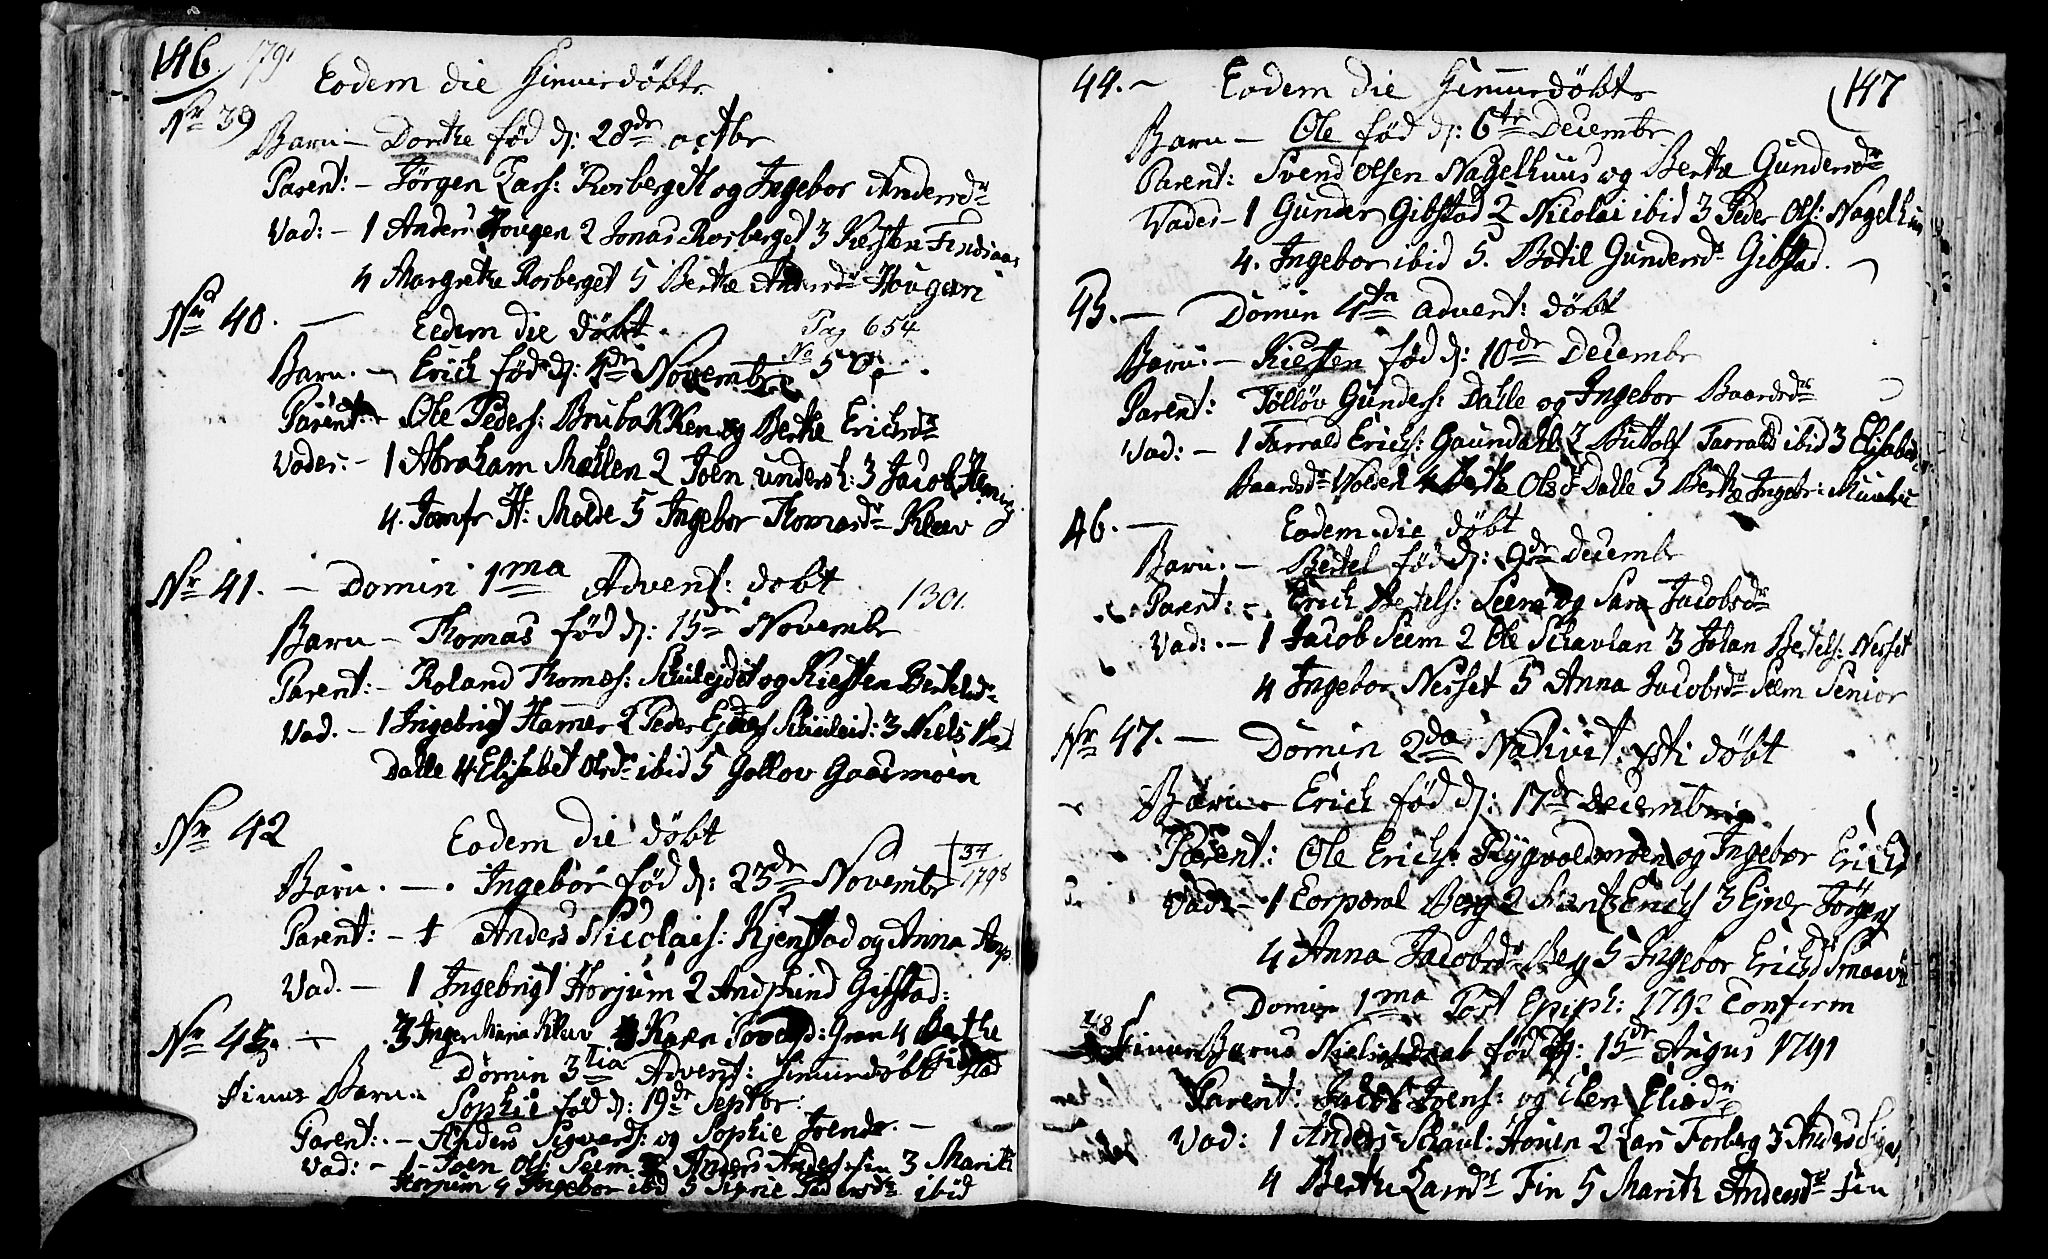 146 1791
Eodem die Hiemmedöbte
Nr 39
Barn - Dorthe fød d: 28de octbr
Parent: - Jörgen Lars: Rosberget og Ingebor Andersdr
Vad: - 1 Anders Hougen 2 Jonas Rosberget 3 Kiersten Findsaas
4 Margrethe Rosberget 5 Berthe Andersdr Hougen
Nr 40. - Eodem die döbt. Pag 654
No 50.
Barn. - Erich fød d: 4de Novembr
Parent: - Ole Peders: Brubakken og Berthe Erichsdr
Vader: - 1 Abraham Møllen 2 Joen underoh: 3 Jacob Heming
4. Jomfr H: Molde 5 Ingebor Thomasdr Kleev
Nr 41. - Domin 1ma Advent: dobt 1301.
Barn - Thomas fød d: 15de Novembr
Parent: - Roland Thomes: og Kiesten Bertelsdr
Vad. - 1 Ingebrigt Hammer 2 Peder 3 Niels
Dalle 4 Elisabet Olsdr ibid 5 Gollov Gaasmoen
Nr 42 Eodem die döbt
Barn. - . Ingebor fød d: 23de Novembr † 34/1798
Parent: - † Anders Nicolais: Kjenstad og Anna
Vad. - 1 Ingebrigt Horjum 2 Gibstad:
3 Inger Maria Kleev Karn Gran 4 Berthe
Nr 43. - Domin 3tia Advent: Himmedöbt
Finnes Barn Sophie fød d: 19de Septbr:
Parent: - Anders Sigvards: og Sophie Joensdr. -
Vad: - 1 Joen Ols: Seem 2 Anders Anders: fin 3 Marith
Horjum 4 Ingebor ibid 5 Siprie Pedersdr ibid
44. - Eodem die Himmedöbte 147
Barn - Ole fød d: 6te Decembr
Parent: Svend Olsen Nagelhuus og Berthe Gundersdr
Vader - 1 Gunder Gibstad 2 Nicolai ibid 3 Peder Ols: Nagelhuu
4. Ingebor ibid 5. Botil Gundersdr Gibstad.
45. - Domin 4ta advent: döbt
Barn. - Kiesten fød d: 10de Decembr
Parent: Tölløv Gunders: Dalle og Ingebor Baardsdr
Vad: - 1 Tarrald Erichs: Gaundahl 2 Buttolf Tarrald ibid 3 Elisabet
Baardsdr Wolden 4 Berthe Olsdr Dalle 5 Berthe Ingebr:
46. - Eodem die döbt
Barn. - Bertel fød d: 9de Decembr
Parent: - Erich Betels: Seem og Sara Jacobsdr
Vad: . - 1 Jacob Seem 2 Ole Schavlan 3 Johan Bertels: Nesset
4 Ingebor Nesset 5 Anna Jacobsdr Seem Senior
Nr 47. - Domin 2da Nativit: Xsti döbt
Barn - Erich fød d: 17de Decembris
Parent: Ole Erichs: og Ingebor Erichs
Vad: - 1 Corporal Berg 2 Erichs 3 Ejner Jörgens
4 Anna Jacobsdr Berg 5 Ingebor Erichsdr
Domin 1ma Post Epiph: 1792 Conferm
48 Finne Barns Nieliss Daab fød d: 15de Augus 1791
Parent: Jacob Joens: og Elen Eliædr
Vad: 1 Anders 2 Lars Forberg 3 Anders
4 Berthe Larsdr Fin 5 Marith Andersdr Fin